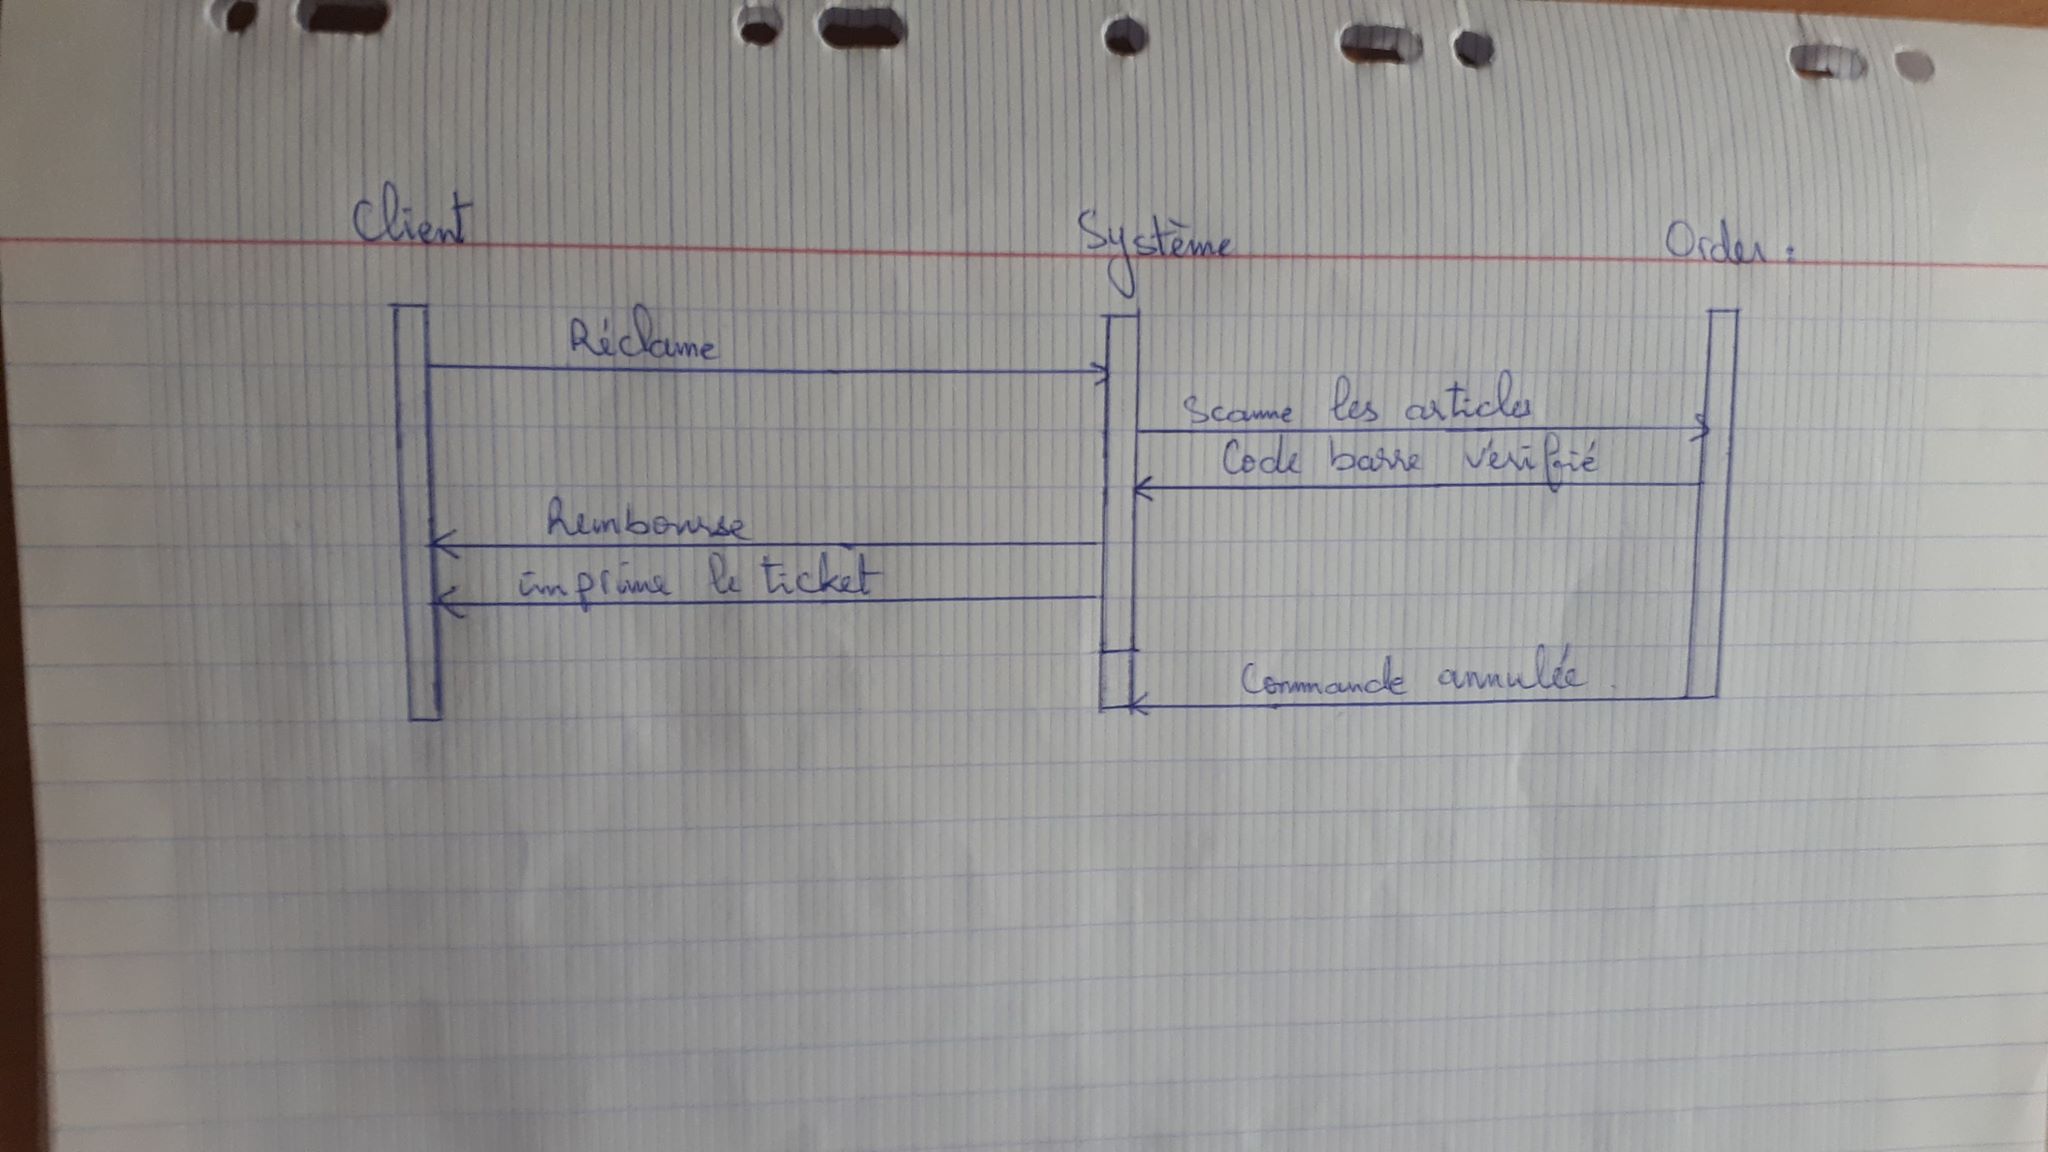 Client Système Order :
Réclame
Scanne les articles
Code barre vérifié
Rembourse
imprime le ticket
Commande annulée.